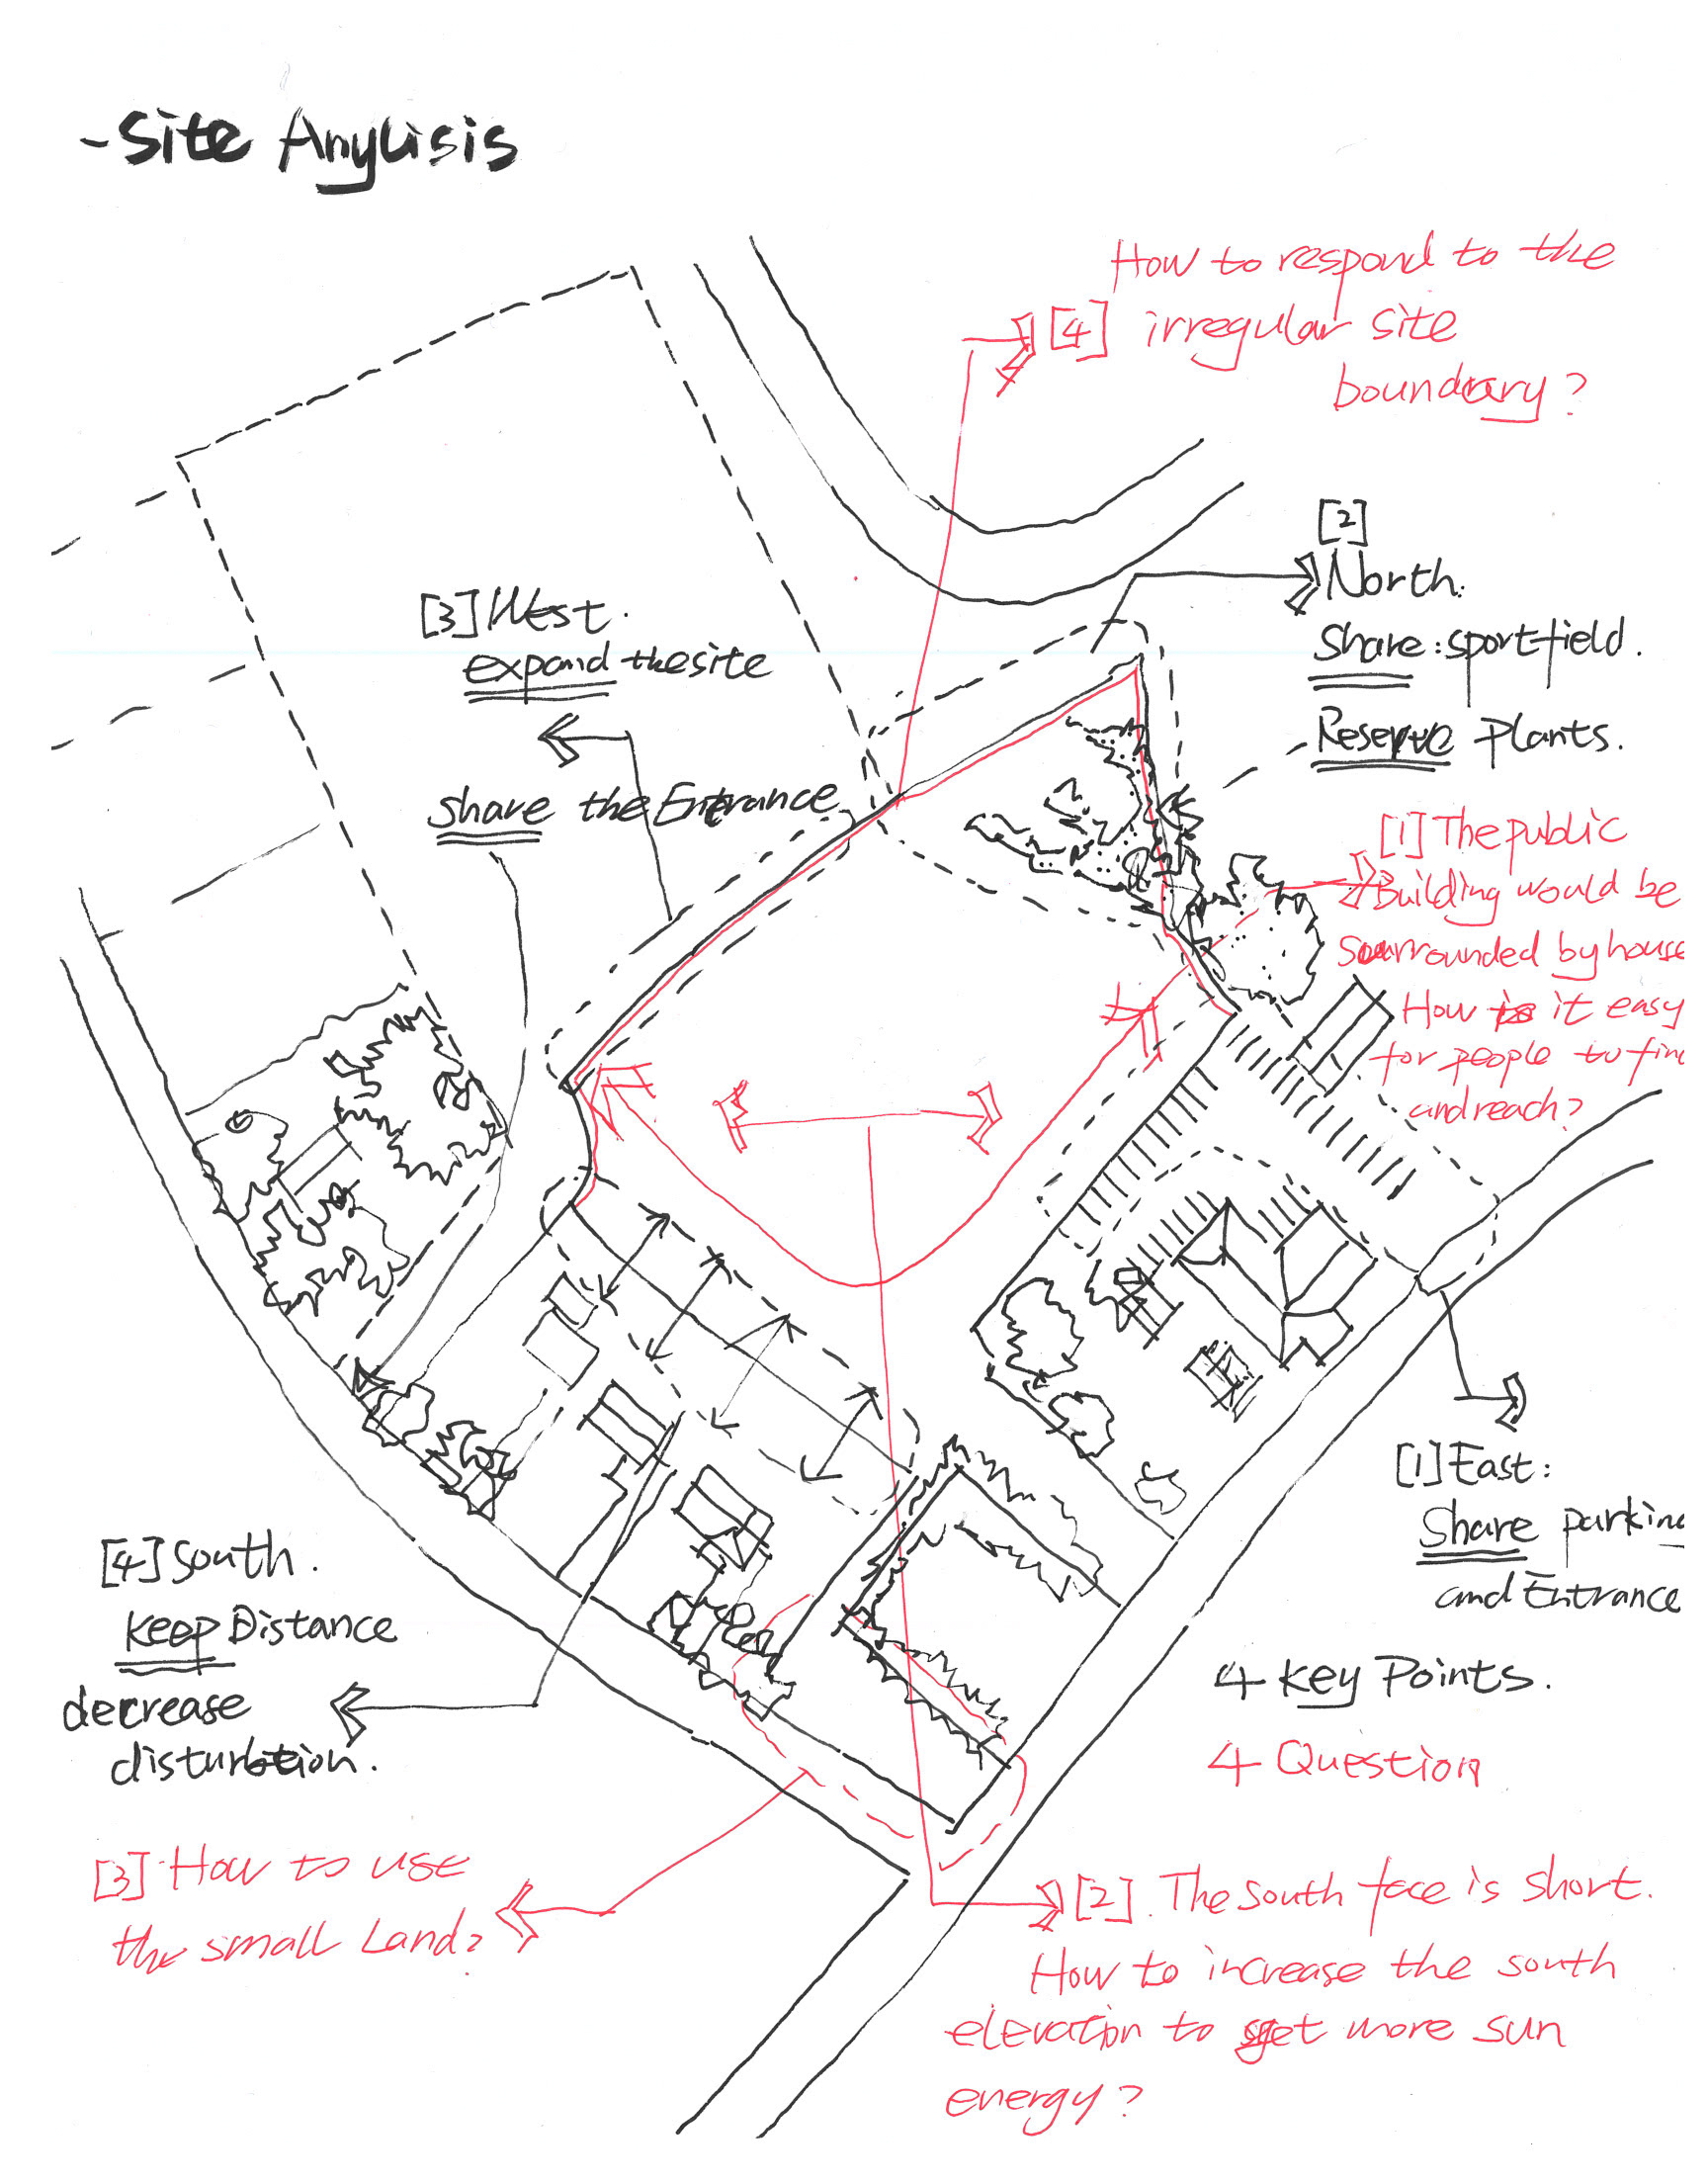 - Site Anylisis
How to respond to the
[4] irregular site
boundrary?
[2]
North:
Share: sport field.
Reserve Plants.
[3] West.
expand the site
Share the Entrance
[1] The public
Building would be
Surrounded by house
How is it easy
for people to fin
and reach?
[1] East:
Share parkin
and Entrance
[4] South.
Keep Distance
decrease
disturbtion.
4 Key Points.
4 Question
[3] How to use
the small Land?
[2]. The south face is short.
How to increase the south
elevation to get more sun
energy?